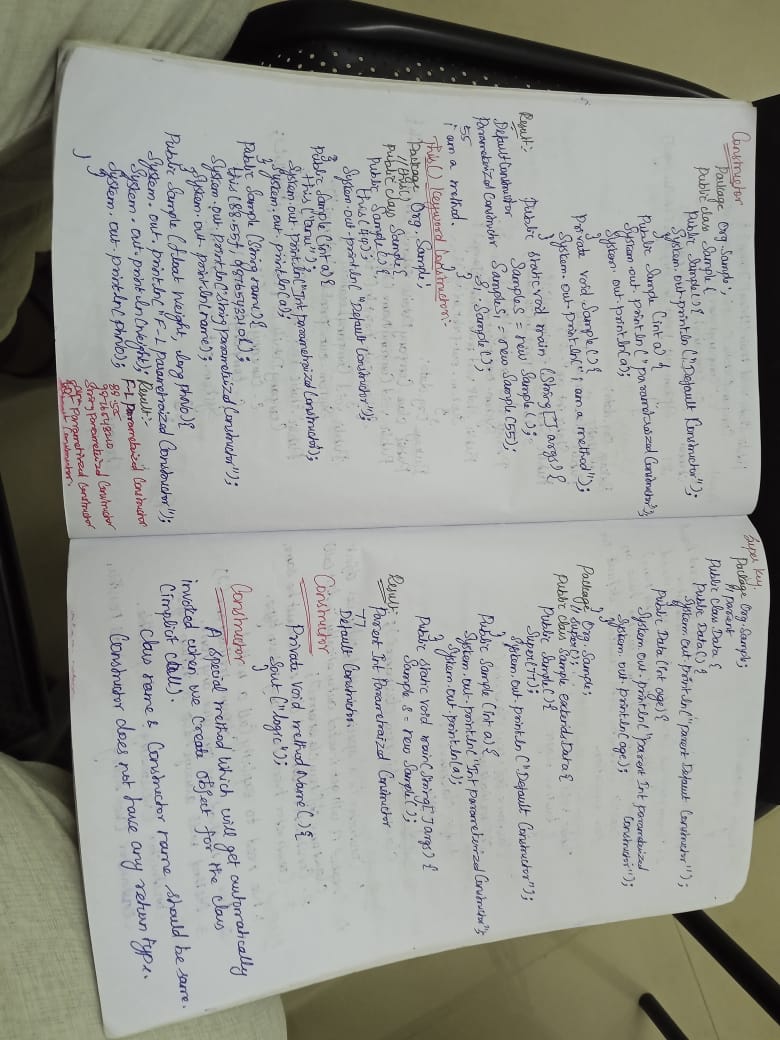 Constructor
Package Org.Sample;
Public class Sample {
Public Sample() {
System.out.println("Default Constructor");
}
Public Sample (int a) {
System.out.println("parametraized Constructor");
System.out.println(a);
}
Private void Sample() {
System.out.println("i am a method");
}
Public static void main (String[] args) {
Sample s = new Sample();
Sample s1 = new Sample(55);
s1.Sample();
}
}
Result:-
Default Constructor
Parameterized Constructor
55
i am a method.
This() Keyword Constructor:-
Package Org.Sample;
// this()
Public class Sample {
Public Sample() {
this(44);
System.out.println("Default Constructor");
}
Public Sample (int a) {
this("anu");
System.out.println("Int parametraized Constructor);
System.out.println(a);
}
Public Sample (String name) {
this(88.55f, 9876543210l);
System.out.println("String parameterized Constructor");
System.out.println(name);
}
Public Sample (float weight, long phno) {
System.out.println("F-L parametraized Constructor");
System.out.println(weight);
System.out.println(phno);
}
}
Result:-
F-L parametraized Constructor
88.55
9876543210
String parameteized Constructor
anu
Int Parametrized Constructor
Constructor.
Super Key.
Package Org.Sample;
// parent
Public class Data {
Public Data() {
System.out.println("parent Default Constructor");
}
Public Data (int age) {
System.out.println("parent Int parameteized
Constructor");
System.out.println(age);
}
}
Package Org.Sample;
// super();
Public class Sample extends Data {
Public Sample() {
Super(77);
System.out.println("Default Constructor");
}
Public Sample (int a) {
System.out.println("Int parameterized Constructor");
System.out.println(a);
}
Public static void main(String[] args) {
Sample s = new Sample();
Result:
Parent Int Parametraized Constructor
77
Default Constructor.
Constructor
Private void method Name() {
Sout ("logic");
}
Constructor
A special method which will get automatically
invoked when we create object for the class
(implicit call).
Class name & Constructor name should be same.
Constructor does not have any return type.